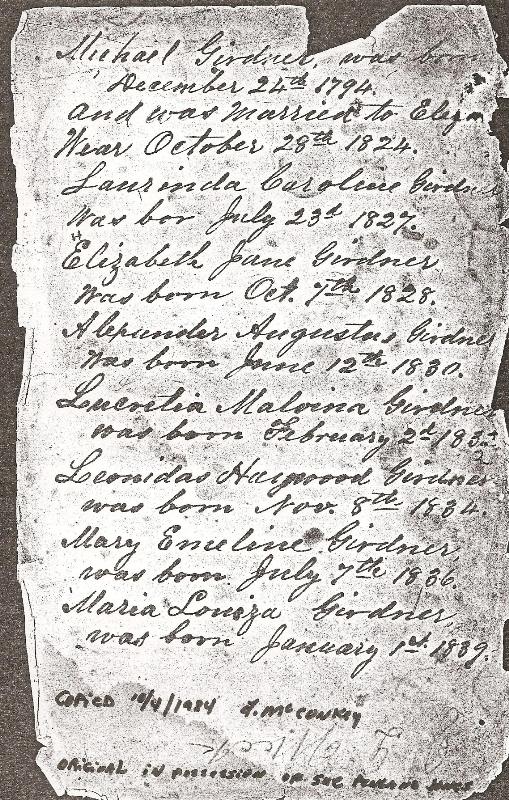 Michael Girdner, was born
December 24th 1794.
and was Married to Eliza
Wear October 28th 1824.
Laurinda Caroline Girdner
Was bor July 23d 1827.
Elizabeth Jane Girdner
Was born Oct. 7th 1828.
Alexander Augustus Girdner
Was born June 12th 1830.
Lucretia Malvina Girdner
was born February 2d 183
Leonidas Haywood Girdner
was born Nov. 8th 1834.
Mary Emeline Girdner
was born July 7th 1836.
Maria Louiza Girdner,
was born January 1st 1839.
COPIED 10/4/1984 J. McCONKEY
ORIGINAL IN POSSESSION OF SUE